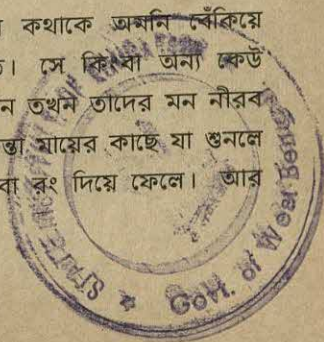 কথাকে অমনি বেঁকিয়ে
। সে কিংবা অন্য কেউ
ন তখন তাদের মন নীরব
মায়ের কাছে যা শুনলে
বা রং দিয়ে ফেলে। আর
STATE
Govt. of West Bengal